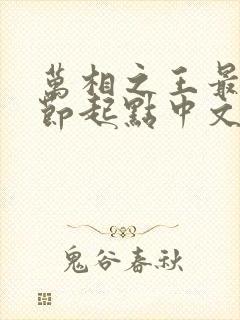 萬相之王最
節起點中文
鬼谷春秋